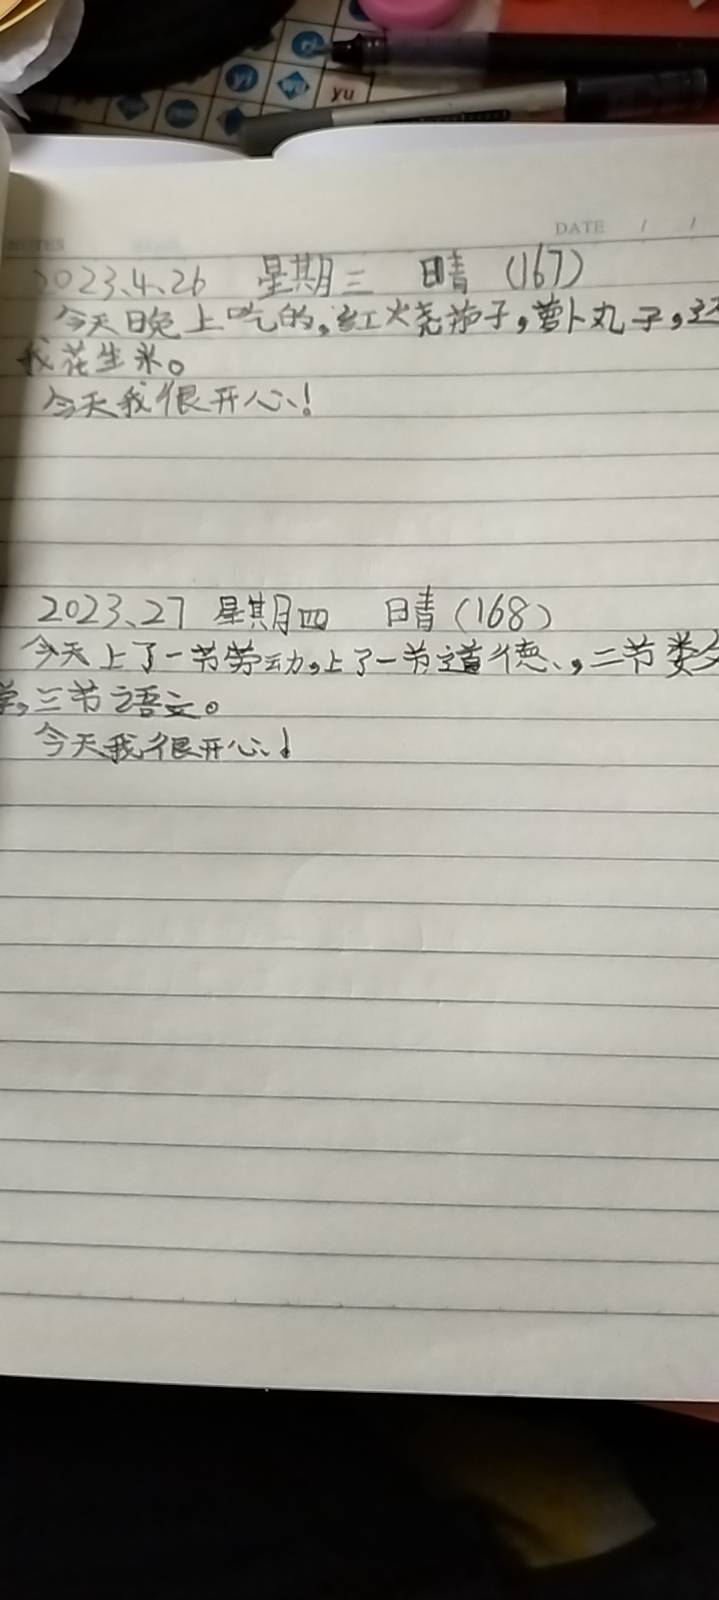 yi
wu
yu
DATE / /
2023.4.26 星期三 晴 (167)
今天晚上吃的,红火烧茄子,萝卜丸子,还
我花生米。
今天我很开心!
2023.27 星期四 晴(168)
今天上了一节劳动,上了一节道德,二节数
学,三节语文。
今天我很开心!